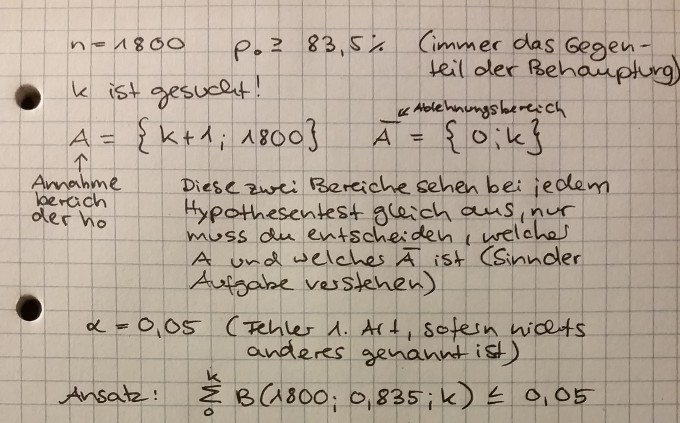 n = 1800 p₀ ≥ 83,5% (immer das Gegen-
teil der Behauptung)
k ist gesucht!
← Ablehnungsbereich
A = { k+1; 1800} A̅ = { 0; k}
↑
Annahme
bereich
der ho
Diese zwei Bereiche sehen bei jedem
Hypothesentest gleich aus, nur
muss du entscheiden, welches
A und welches A̅ ist (Sinn der
Aufgabe verstehen)
α = 0,05 (Fehler 1. Art, sofern nichts
anderes genannt ist)
k
Ansatz: Σ B(1800; 0,835; k) ≤ 0,05
0